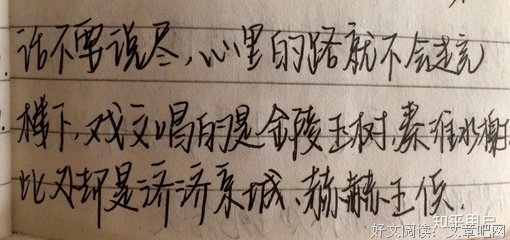 话不要说尽,心里的路就不会走完
楼下,戏文唱的是金陵玉树,秦淮水榭
此刻却是济济京城、赫赫王侯.
知乎用户
好文阅读:文章吧网